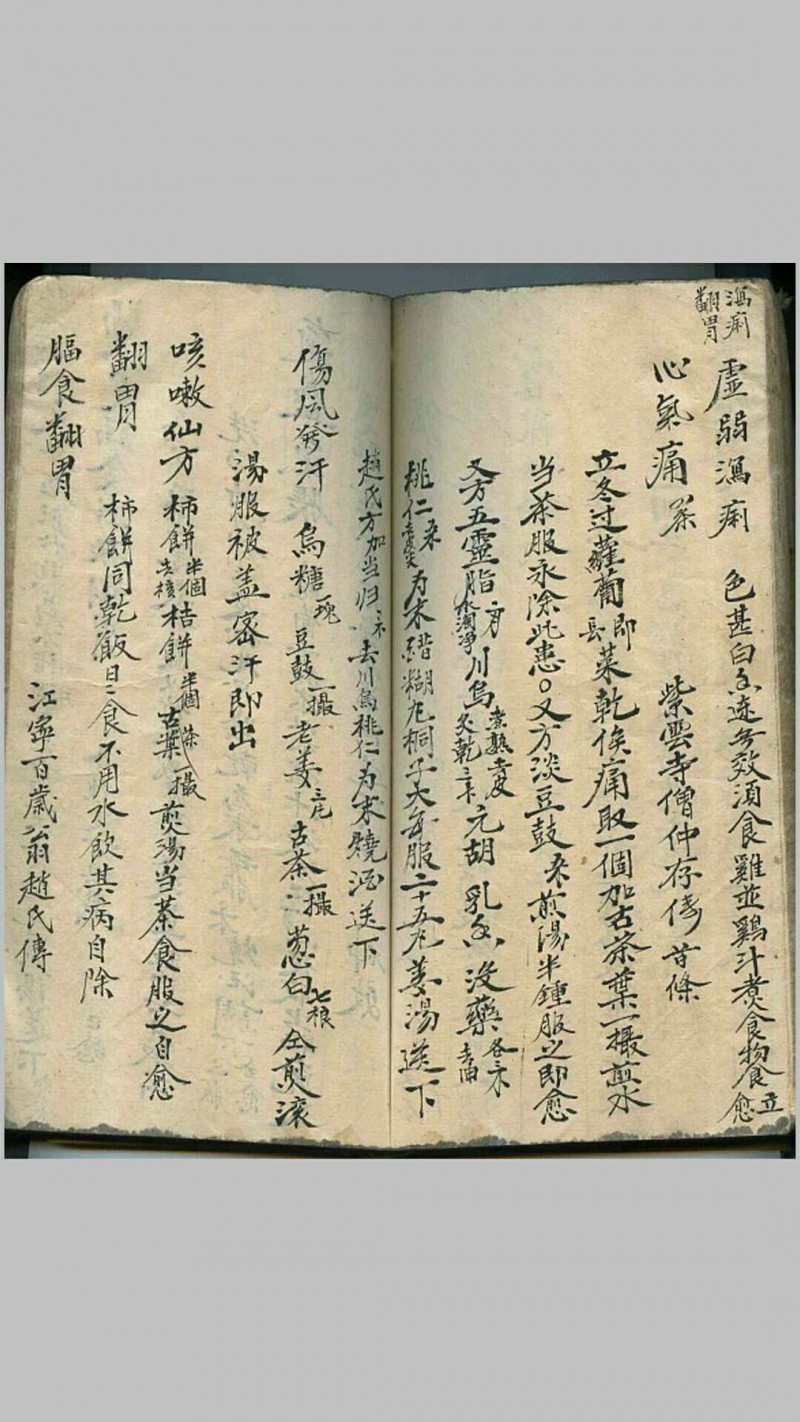 瀉痢
翻胃
虛弱瀉痢 色甚白 速 效須食雞並雞汁煮食物食立愈
心氣痛茶 紫雲寺僧仲存傳昔條
立冬过蘿蔔即菜乾俟痛取一個加古茶葉一撮煎水
当茶服永除此患○又方淡豆鼓 煎湯半鍾服之即愈
又方五靈脂 水淘淨川烏煮熟去皮炙乾 元胡 乳香 没藥各 去油
桃仁 去皮尖为末 糊丸桐子大每服二十五丸姜湯送下
趙氏方加当归 去川烏桃仁为末燒酒送下
傷風發汗 烏糖一塊 豆鼓一撮老姜 古茶一撮 葱白七根 仝煎滾
湯服被盖密汗即出
咳嗽仙方 柿餅半個去核桔餅半個 古茶葉一撮煎湯当茶食服之自愈
翻胃 柿餅同乾飯日日食不用水飲其病自除
膈食翻胃 江寧百歲翁趙氏傳